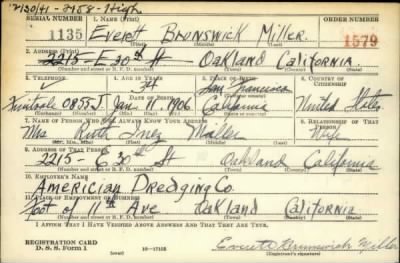 2/30/41 - 2458 - High
SERIAL NUMBER 1. NAME (Print) ORDER NUMBER
1135 Everett Brunswick Miller 1579
(First) (Middle) (Last)
2. ADDRESS (Print)
2215 - E 30th St Oakland California
(Number and street or R. F. D. number) (Town) (County) (State)
3. TELEPHONE 4. AGE IN YEARS 5. PLACE OF BIRTH 6. COUNTRY OF CITIZENSHIP
34 San Francisco
0855J Jan. 11, 1906 California United States
7. NAME OF PERSON WHO WILL ALWAYS KNOW YOUR ADDRESS 8. RELATIONSHIP OF THAT PERSON
Mrs Ruth Inez Miller Wife
(Mr., Mrs., Miss) (First) (Middle) (Last)
9. ADDRESS OF THAT PERSON
2215 - E 30th St Oakland California
(Number and street or R. F. D. number) (Town) (County) (State)
10. EMPLOYER'S NAME
Americian Dredging Co.
11. PLACE OF EMPLOYMENT OR BUSINESS
Foot of 11th Ave Oakland California
(Number and street or R. F. D. number) (Town) (County) (State)
I AFFIRM THAT I HAVE VERIFIED ABOVE ANSWERS AND THAT THEY ARE TRUE.
REGISTRATION CARD
D. S. S. Form 1 (over) 16-17105 Everett Brunswick Miller
(Registrant's signature)